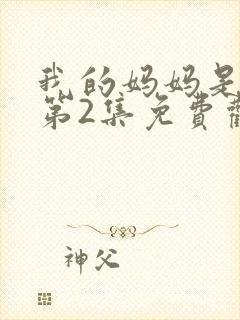 我的妈妈是
第2集免費
神父